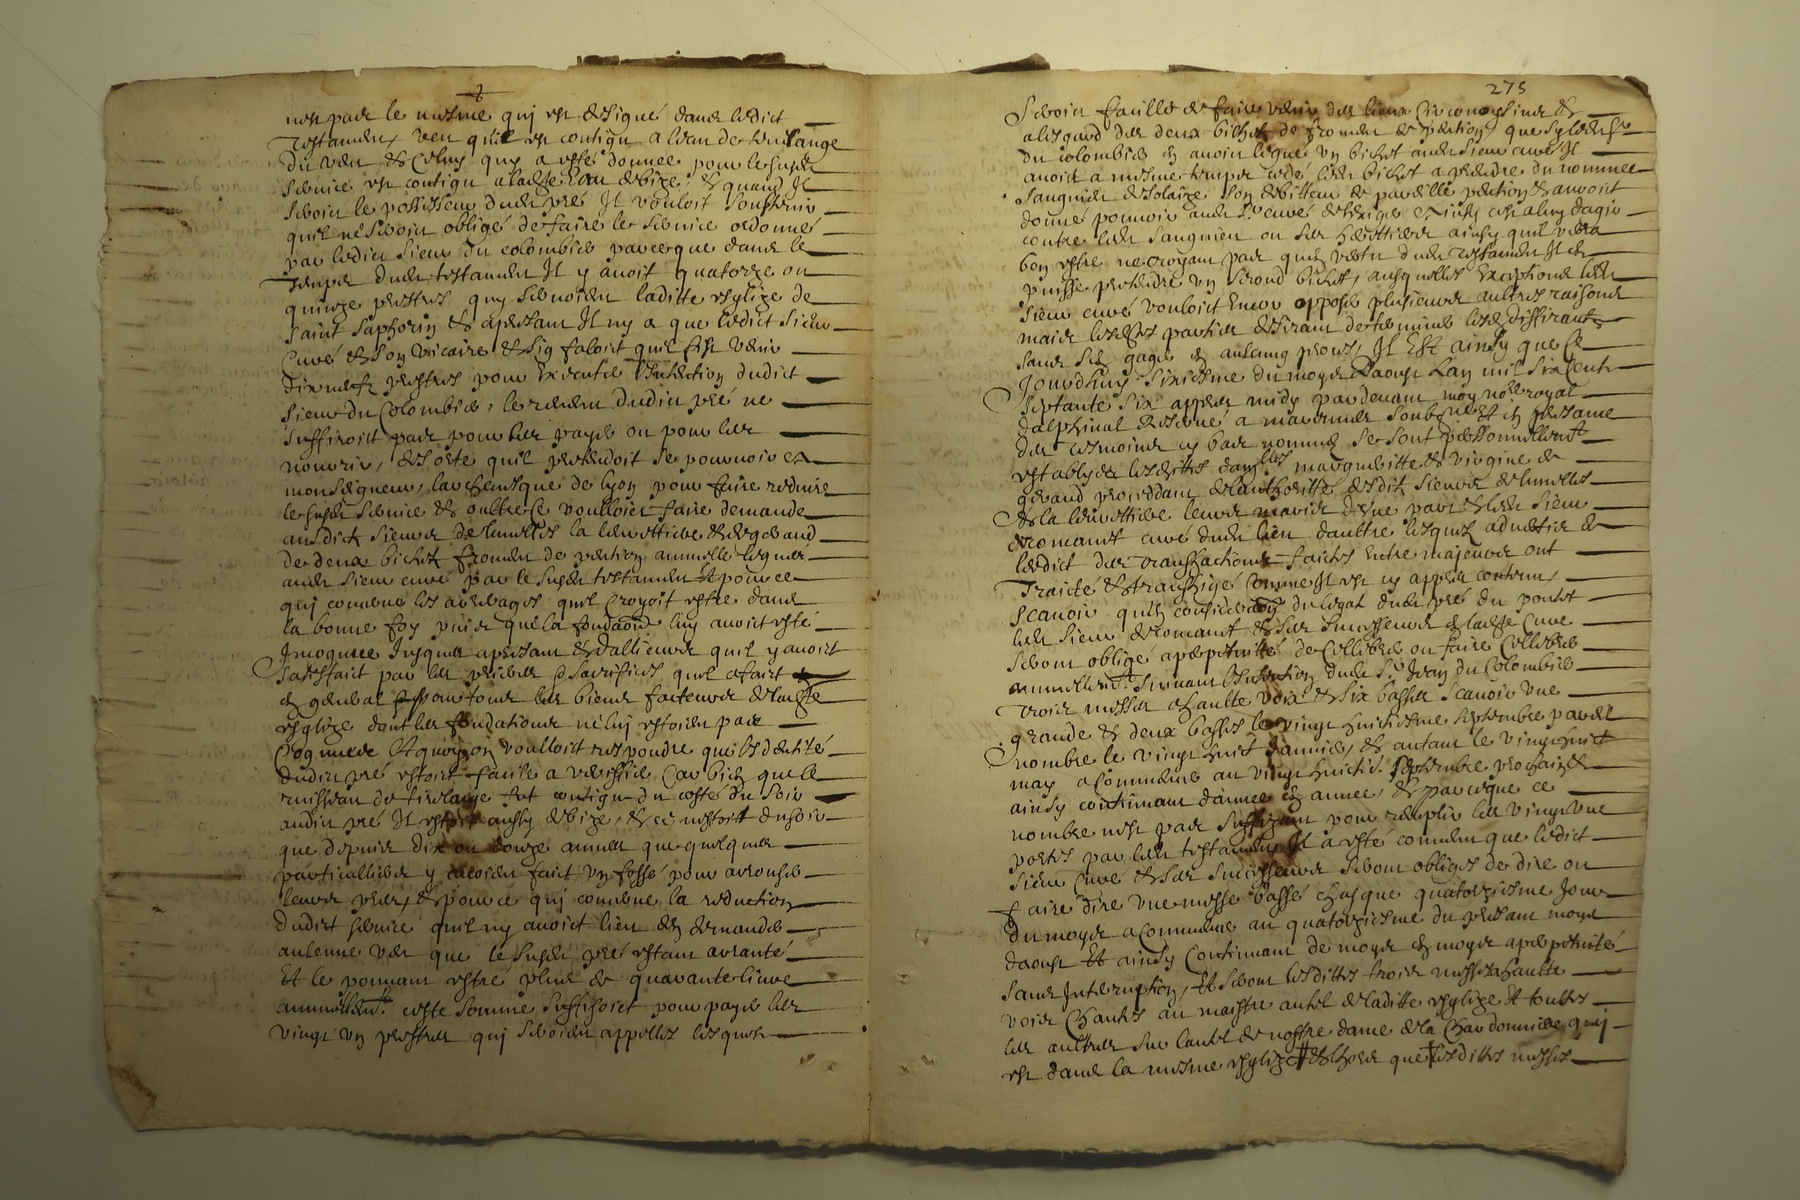 nest pas le mesme quj est désigné dans ledict
testament, veu qu'il est contigu a leau de tirelange
du vent & celuy quy a esté donnee pour le susdt
service est contigu a ladte eau de bize, & quand Il
seroit le possesseur dudt pré Il vouloit soustenir
quil ne seroit obligé de faire le service ordonné
par ledict sieur du colombier parceque dans le
temps dudt testament Il y avoit quatorze ou
quinze prestres quy servoient laditte esglize de
saint saphorin & apresant Il ny a que ledict sieur
curé & son vicaire & sig faloit quil fist venir
dixneufz prestres pour executer lintention dudict
sieur du Colombier, le revenu dudict pré ne
suffiroit pas pour les payer ou pour les
nourrir, de sorte quil pretendoit se pourvoir a
monseigneur, larchevesque de lyon pour faire reduire
le susdt service & oultre ce voulloit faire demande
ausdicts sieurs de lurelles la levrottiere & de grand
de deux bichets froment de pention annuelle legues
audt sieur curé par le susdt testament Et pour ce
quj concerne les arerages quil croyoit estre dans
la bonne foy puis que la fondaōn luy avoit esté
Incogneue Jusques apresant & dallieurs quil y avoit
satisfait par les prieres & sacrifices quil a fait
en general pour tous les biens facteurs de ladte
esglize dont les fondations ne luj estoient pas
Cogneues Et quoy on voulloit respondre que lidentité
dudict pré estoit facile a veriffier Car bien que le
ruisseau de tirelange fut contigu du costé du soir
audict pré Il estoit aussy de bize, & ce nestoit du soir
que depuis dix ou douze annees que quelques
particulliers y avoient faict un fossé pour arrouser
leurs prés, & pour ce quj concerne la reduction
dudict service quil ny avoit lieu den demander
aulcune veu que le susdt pré estant arranté
Et le pouvant estre plus de quarante livres
annuellemt. ceste somme suffisoit pour payer les
vingt un prestres quj seroient appelles lesquels
275
seroit faillis de faire venir des lieux circonvoisins &
alesgard des deux bichets de froment de pention que sy ledt sr
du colombier en avoit legué un bichet audt sieur curé Il
avoit a mesme temps cedé ledt bichet a prendre du nommee
sauguier de solaize son debitteur de pareille pention & avoit
donné pouvoir audt sr curé de lexiger
contre ledt sauguier ou ses heretiers ainsy quil verra
bon estre ne croyant pas quen vertu dudt testament Il en
puisse pretendre un second bichet, ausquelles exceptions ledt
sieur curé vouloit Encor opposer plusieurs aultres raisons
mais lesdtes parties desirant de terminer lesdts differants
Il Est ainsy que ce
Jourdhuy sixiesme du moys daoust Lan mil six cents
septante six appres midy pardevant moy nore royal
dalphinal reservé a mariennes soubzné Et en presance
des tesmoings cy bas nommes se sont personnellemt
establyes lesdittes damlles margueritte & virgine de
grand procedant de lauthoritté desdits sieurs de lurelles
& la levrottiere leurs maris dune part & ledt sieur
deromant curé dudt lieu daultre lesquels
ledict des transactions faictes entre majeurs ont
Traicté & transhigé comme Il est cy appres contenu,
scavoir quen consideraōn du legat dudt pré du pontet
ledt sieur deromant & ses successeurs en ladte cure
seront obligé a perpetuitté de cellebrer ou faire cellebrer
annuellemt. suivant lintention dudt sr Jean du Colombier
trois messes a haulte voix & six basses scavoir une
grande & deux basses le vingt huictiesme septembre pareil
nombre le vingt huict janvier, & autant le vingt huict
may a commencer au vingt huictie. septembre prochain &
ainsy continuant dannee en annee, & parceque ce
nombre nest pas suffizant pour remplir les vingt une
portés par ledt testament Il a esté convenu que ledict
sieur curé & ses successeurs seront obliges de dire ou
faire dire une messe basse chasque quatorziesme jour
du moys a commencer au quatorziesme du presant moys
daoust Et ainsy continuant de moys en moys a perpetuité
sans Interruption, Et seront lesdittes trois messes a haulte
voix chantes au maistre autel de laditte esglize Et touttes
les aultres sur lautel de nostre dame de la chardonniere quj
est dans la mesme esglize & lhors que lesdittes messes